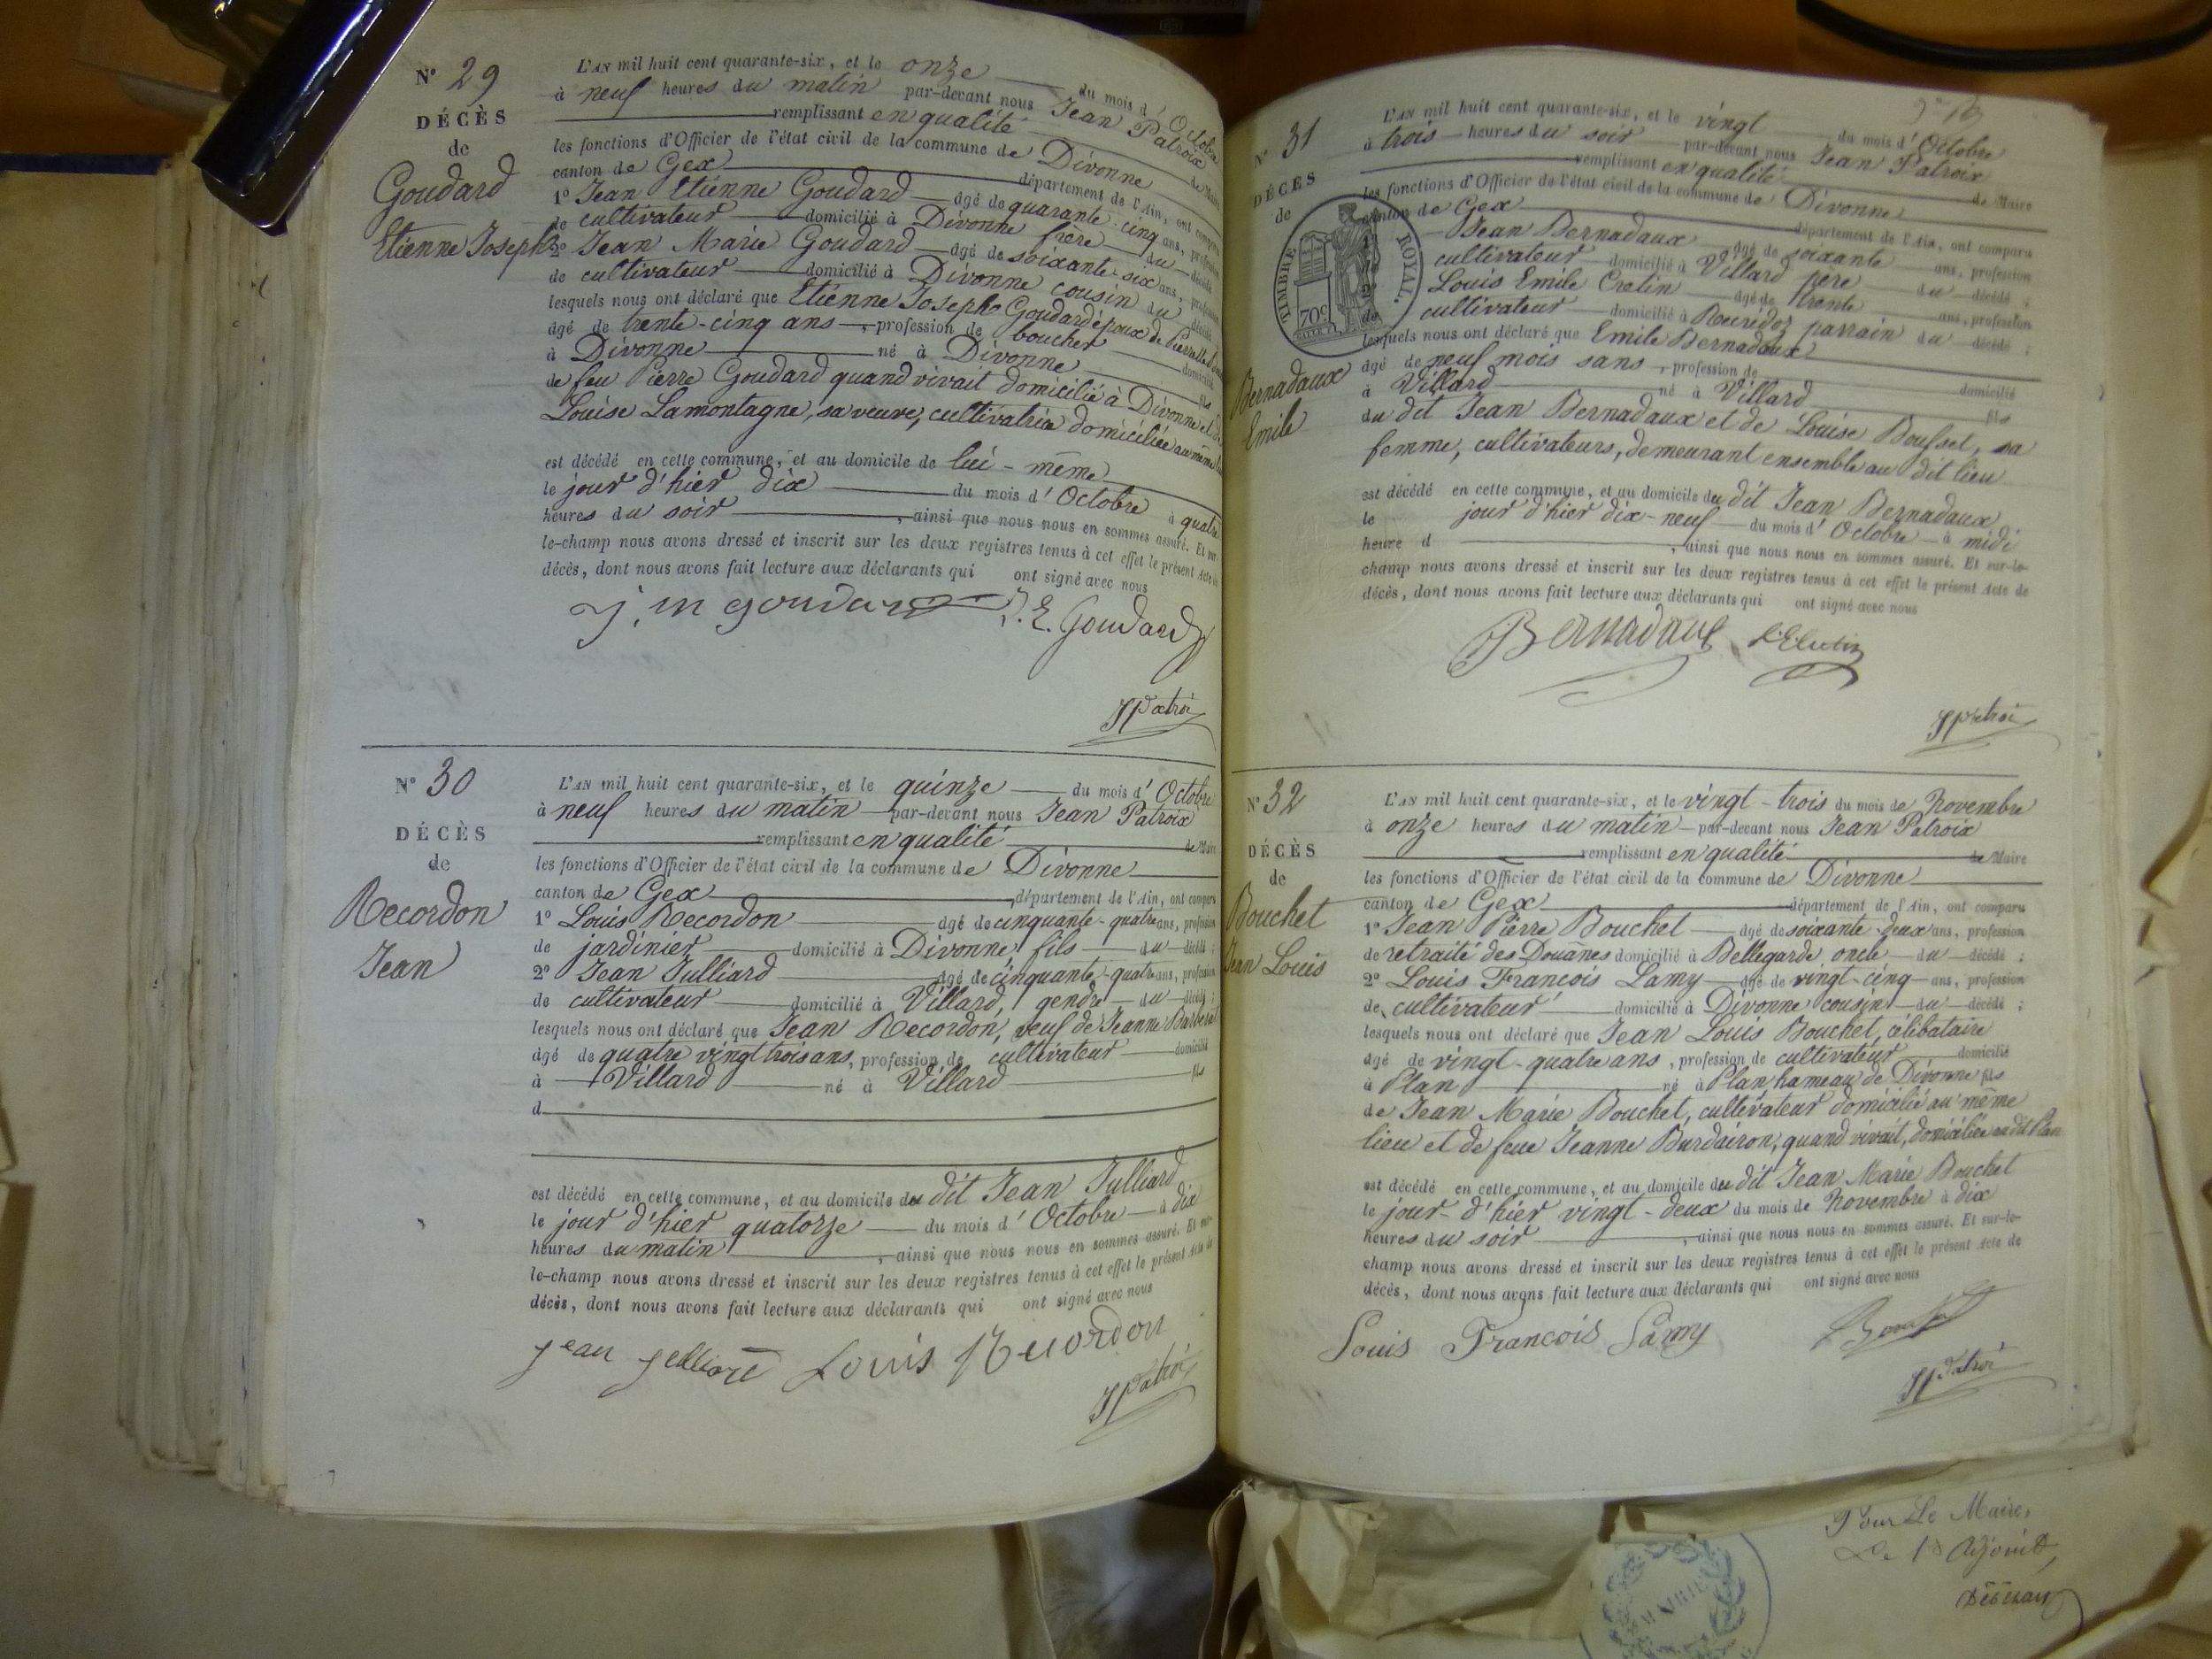 N° 29
DÉCÈS
de
Goudard
Etienne Joseph
L'AN mil huit cent quarante-six, et le onze du mois d'Octobre
à neuf heures du matin par-devant nous Jean Patroix
remplissant en qualité de Maire
les fonctions d'Officier de l'état civil de la commune de Divonne
canton de Gex département de l'Ain, ont comparu
1° Jean Etienne Goudard âgé de quarante-cinq ans, profession
de cultivateur domicilié à Divonne frère du décédé
2° Jean Marie Goudard âgé de soixante-six ans, profession
de cultivateur domicilié à Divonne cousin du décédé
lesquels nous ont déclaré que Etienne Joseph Goudard époux de Pierrette
âgé de trente-cinq ans, profession de boucher domicilié
à Divonne né à Divonne fils
de feu Pierre Goudard quand vivait domicilié à Divonne et de
Louise Lamontagne, sa veuve, cultivatrice domiciliée au même
est décédé en cette commune, et au domicile de lui-même
le jour d'hier dix du mois d'Octobre à quatre
heures du soir, ainsi que nous nous en sommes assuré. Et sur-
le-champ nous avons dressé et inscrit sur les deux registres tenus à cet effet le présent Acte de
décès, dont nous avons fait lecture aux déclarants qui ont signé avec nous
j. m goudard J. E. Goudard
JPatroi
N° 30
DÉCÈS
de
Recordon
Jean
L'AN mil huit cent quarante-six, et le quinze du mois d'Octobre
à neuf heures du matin par-devant nous Jean Patroix
remplissant en qualité de Maire
les fonctions d'Officier de l'état civil de la commune de Divonne
canton de Gex, département de l'Ain, ont comparu
1° Louis Recordon âgé de cinquante-quatre ans, profession
de jardinier domicilié à Divonne, fils du décédé;
2° Jean Julliard âgé de cinquante-quatre ans, profession
de cultivateur domicilié à Villard, gendre du décédé;
lesquels nous ont déclaré que Jean Recordon, veuf de Jeanne Barberat
âgé de quatre vingt trois ans, profession de cultivateur domicilié
à Villard né à Villard fils
d
est décédé en cette commune, et au domicile du dit Jean Julliard
le jour d'hier quatorze du mois d'Octobre à dix
heures du matin, ainsi que nous nous en sommes assuré. Et sur-
le-champ nous avons dressé et inscrit sur les deux registres tenus à cet effet le présent Acte de
décès, dont nous avons fait lecture aux déclarants qui ont signé avec nous
Jean Louis Recordon
JPatroi
N° 31
DÉCÈS
de
TIMBRE ROYAL.
70c
Bernadaux
Emile
L'AN mil huit cent quarante-six, et le vingt du mois d'Octobre
à trois heures du soir par-devant nous Jean Patroix
remplissant en qualité de Maire
les fonctions d'Officier de l'état civil de la commune de Divonne
canton de Gex département de l'Ain, ont comparu
Jean Bernadaux âgé de soixante ans, profession
cultivateur domicilié à Villard père du décédé;
Louis Emile Cretin âgé de trente ans, profession
cultivateur domicilié à parrain du décédé;
lesquels nous ont déclaré que Emile Bernadaux
âgé de neuf mois sans, profession de domicilié
à Villard né à Villard fils
du dit Jean Bernadaux et de Louise Bousset, sa
femme, cultivateurs, demeurant ensemble au dit lieu
est décédé en cette commune, et au domicile du dit Jean Bernadaux
le jour d'hier dix-neuf du mois d'Octobre à midi
heure d, ainsi que nous nous en sommes assuré. Et sur-le-
champ nous avons dressé et inscrit sur les deux registres tenus à cet effet le présent Acte de
décès, dont nous avons fait lecture aux déclarants qui ont signé avec nous
Bernadaux
JPatroi
N° 32
DÉCÈS
de
Bouchet
Jean Louis
L'AN mil huit cent quarante-six, et le vingt-trois du mois de Novembre
à onze heures du matin par-devant nous Jean Patroix
remplissant en qualité de Maire
les fonctions d'Officier de l'état civil de la commune de Divonne
canton de Gex département de l'Ain, ont comparu
1° Jean Pierre Bouchet âgé de soixante-deux ans, profession
de retraité des Douanes domicilié à Bellegarde, oncle du décédé;
2° Louis François Lamy âgé de vingt-cinq ans, profession
de cultivateur domicilié à Divonne cousin du décédé;
lesquels nous ont déclaré que Jean Louis Bouchet, célibataire
âgé de vingt-quatre ans, profession de cultivateur domicilié
à Plan né à Plan hameau de Divonne fils
de Jean Marie Bouchet, cultivateur domicilié au même
lieu et de feue Jeanne Burdairon, quand vivait, domiciliée au dit Plan
est décédé en cette commune, et au domicile du dit Jean Marie Bouchet
le jour d'hier vingt-deux du mois de Novembre à dix
heures du soir, ainsi que nous nous en sommes assuré. Et sur-le-
champ nous avons dressé et inscrit sur les deux registres tenus à cet effet le présent Acte de
décès, dont nous avons fait lecture aux déclarants qui ont signé avec nous
Louis François Lamy
JPatroi
Pour Le Maire,
Le 1er Adjoint,
MAIRIE